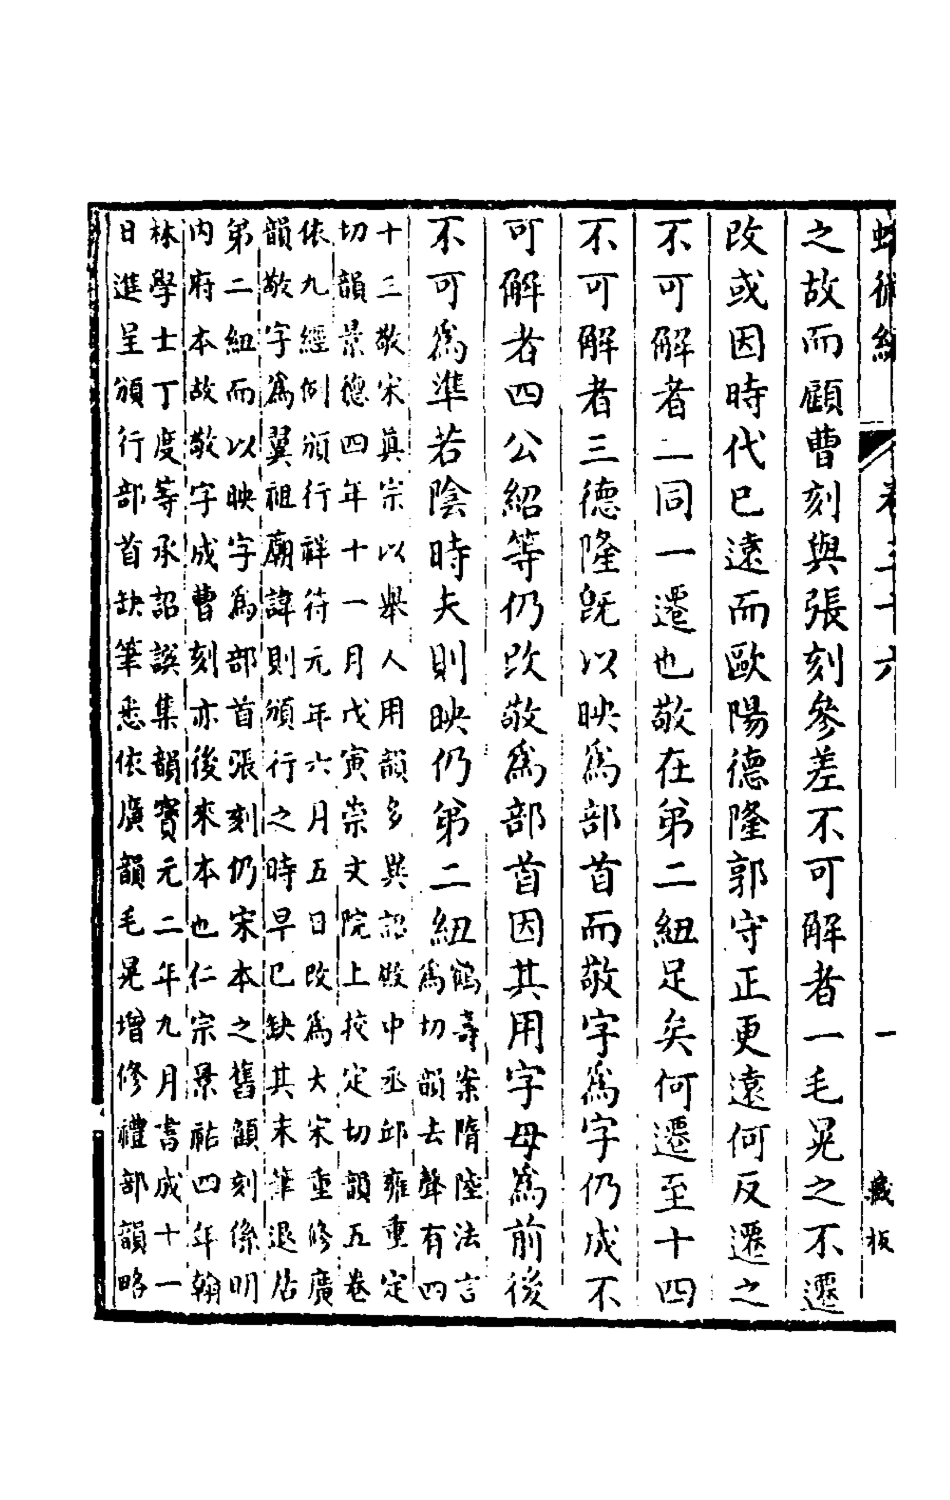 蛾術編 卷三十六 一 藏板
之故而顧曹刻與張刻參差不可解者一毛晃之不遷
改或因時代已遠而歐陽德隆郭守正更遠何反遷之
不可解者二同一遷也敬在第二紐足矣何遷至十四
不可解者三德隆旣以映爲部首而敬字爲字仍成不
可解者四公紹等仍改敬爲部首因其用字母爲前後
不可爲準若陰時夫則映仍第二紐
鶴壽案隋陸法言
爲切韻去聲有四
十三敬宋真宗以舉人用韻多異詔殿中丞邱雍重定
切韻景德四年十一月戊寅崇文院上挍定切韻五卷
依九經例頒行祥符元年六月五日改爲大宋重修廣
韻敬字爲翼祖廟諱則頒行之時早已缺其末筆退居
第二紐而以映字爲部首張刻仍宋本之舊顧刻係明
內府本故敬字成曹刻亦後來本也仁宗景祐四年翰
林學士丁度等承詔譔集韻寶元二年九月書成十一
日進呈頒行部首缺筆悉依廣韻毛晃增修禮部韻略